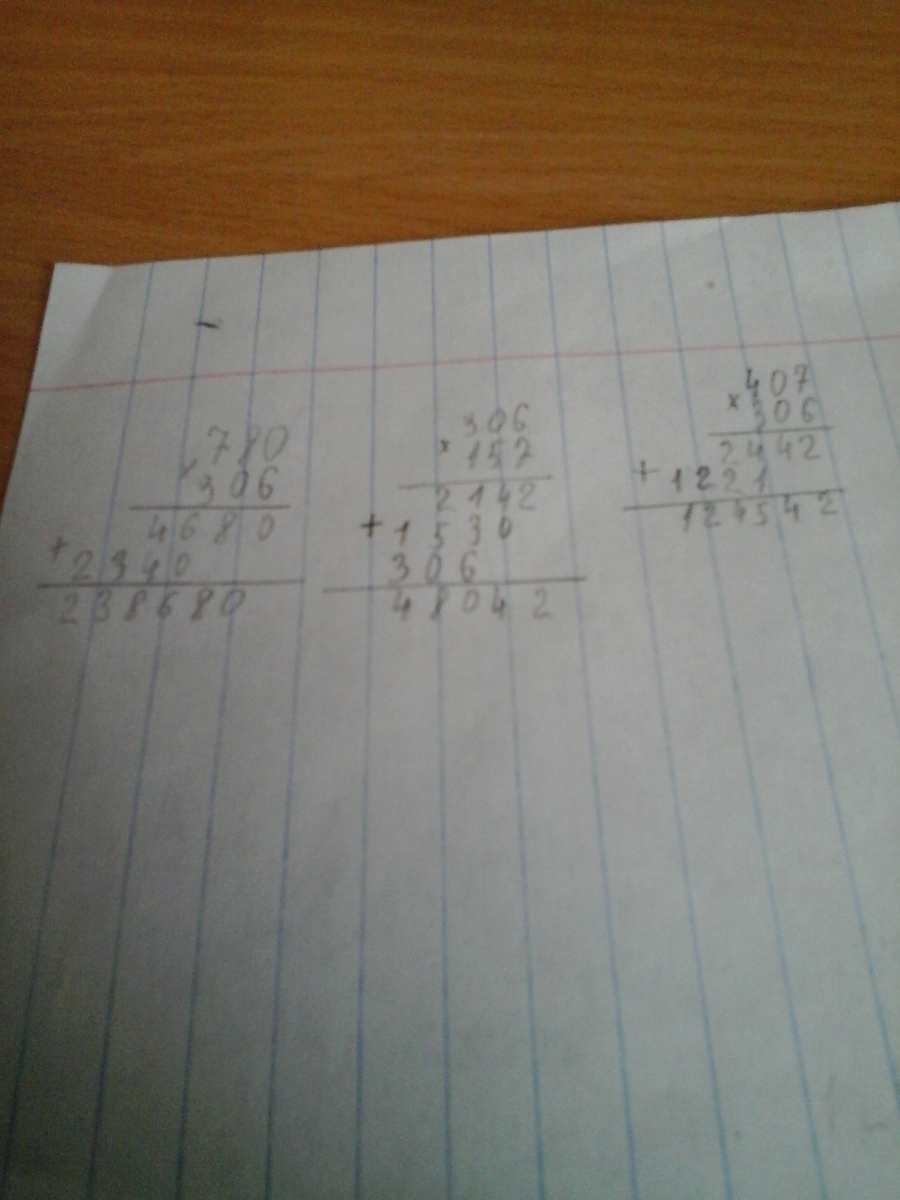 780
× 306
4680
+ 2340
238680
306
× 157
2142
+ 1530
306
48042
407
× 306
2442
+ 1221
124542